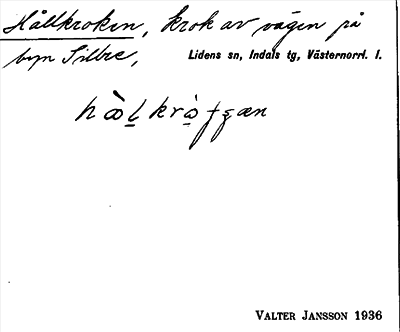 Hållkroken, krok av vägen på
byn Sillre, Lidens sn, Indals tg, Västernorrl. l.
VALTER JANSSON 1936